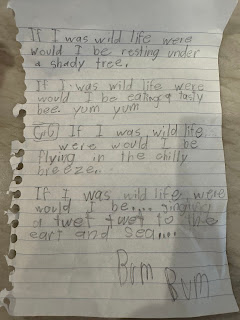 If I was wild life were
would I be resting under
a shady tree.
If I was wild life were
would I be eating a tasty
bee. yum yum
If I was wild life
were would I be
flying in the chilly
breeze..
If I was wild life were
would I be....
a twet twet to the
eart and sea....
Bum
Bum